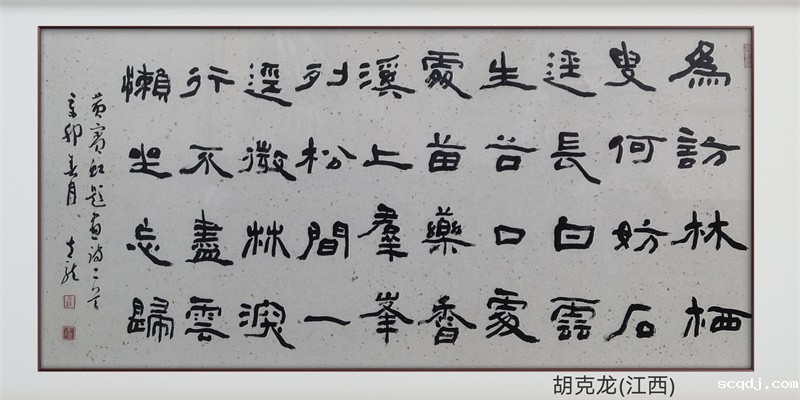 為訪林栖
叟何妨石
逕長白雲
生谷口處
處苗藥香
溪上羣峯
列松間一
逕微林深
行不盡雲
懶坐忘歸
黄賓虹題畫詩二首
辛卯春月 克龍
胡克龙(江西)
scqdj.com